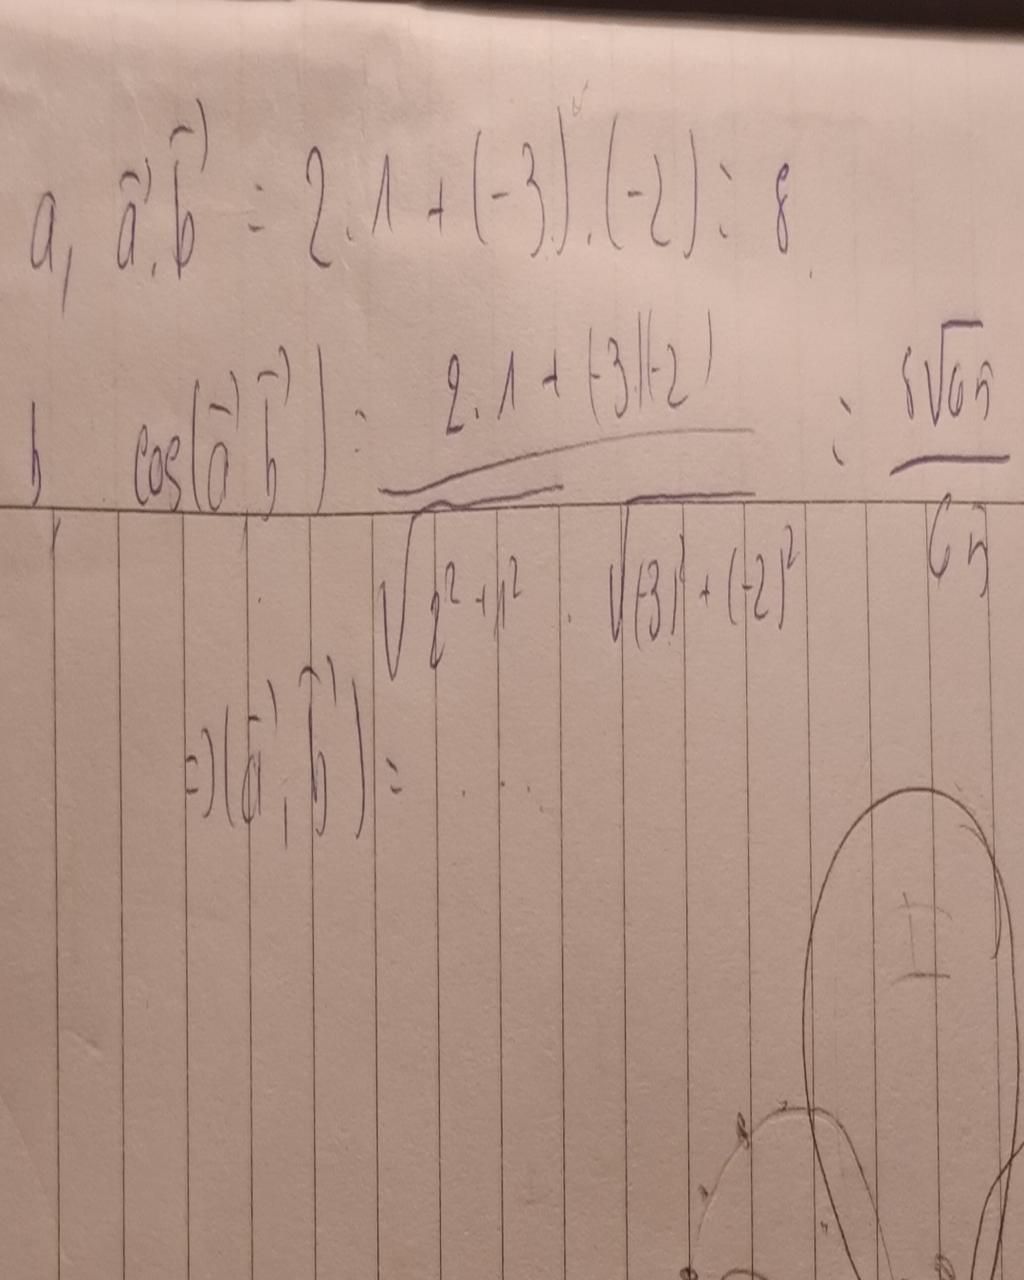 a, a⃗.b⃗ = 2.1 + (-3).(-2) = 8
b, cos(a⃗ b⃗) = (2.1 + (-3)(-2))/(√(2² + 1²) . √((-3)² + (-2)²)) = 8√65/65
=> (a⃗, b⃗) = ...